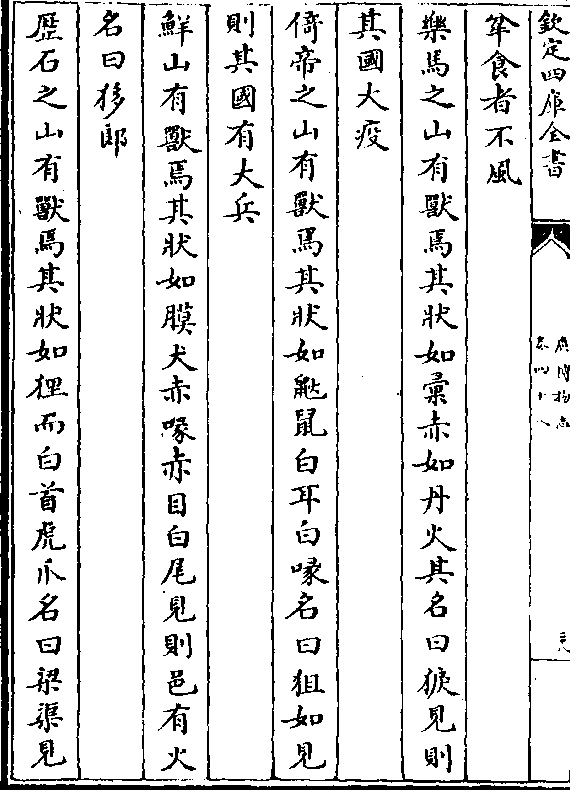 欽定四庫全書
廣博物志
卷四十八
食者不風
樂馬之山有獸焉其狀如彙赤如丹火其名曰見則
其國大疫
倚帝之山有獸焉其狀如鼣鼠白耳白喙名曰狙如見
則其國有大兵
鮮山有獸焉其狀如膜犬赤喙赤目白尾見則邑有火
名曰郎
歴石之山有獸焉其狀如狸而白首虎爪名曰梁渠見